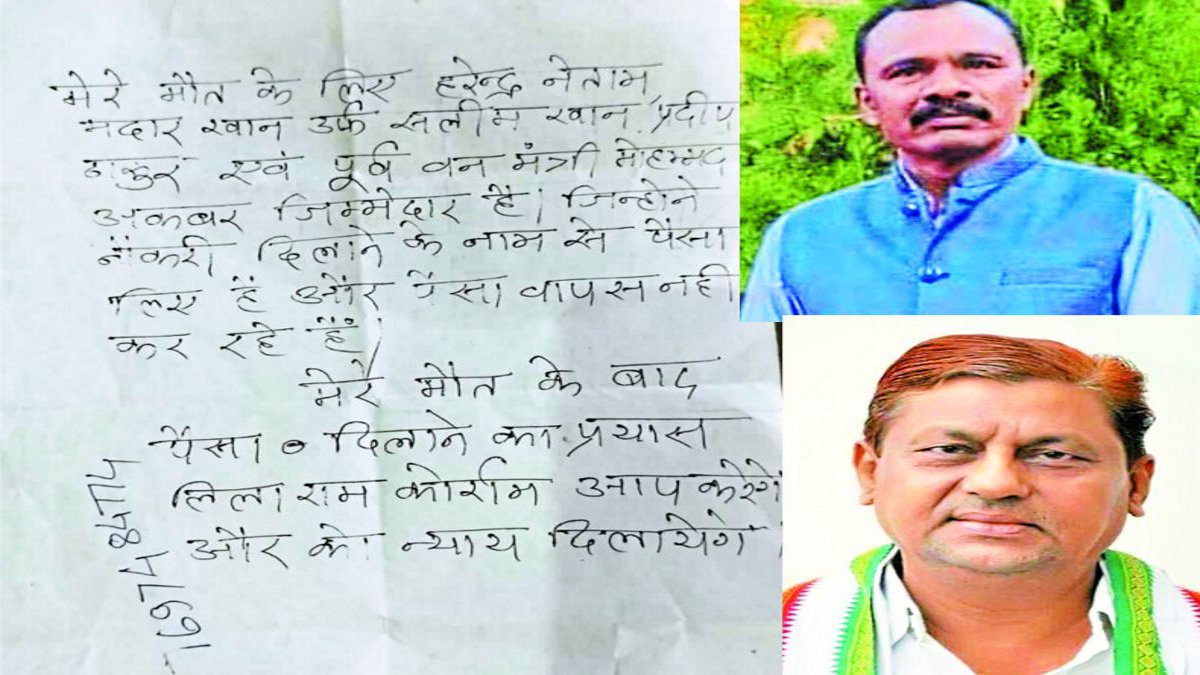 मेरे मौत के लिए हरेन्द्र नेताम
मदार खान उर्फ सलीम खान, प्रदीप
ठाकुर एवं पूर्व वन मंत्री मोहम्मद
अकबर जिम्मेदार है। जिन्होने
नौकरी दिलाने के नाम से पैसा
लिए हैं और पैसा वापस नही
कर रहे हैं।
मेरे मौत के बाद
पैसा दिलाने का प्रयास
लिलाराम कोर्राम आप करेगें
और को न्याय दिलायेगे।